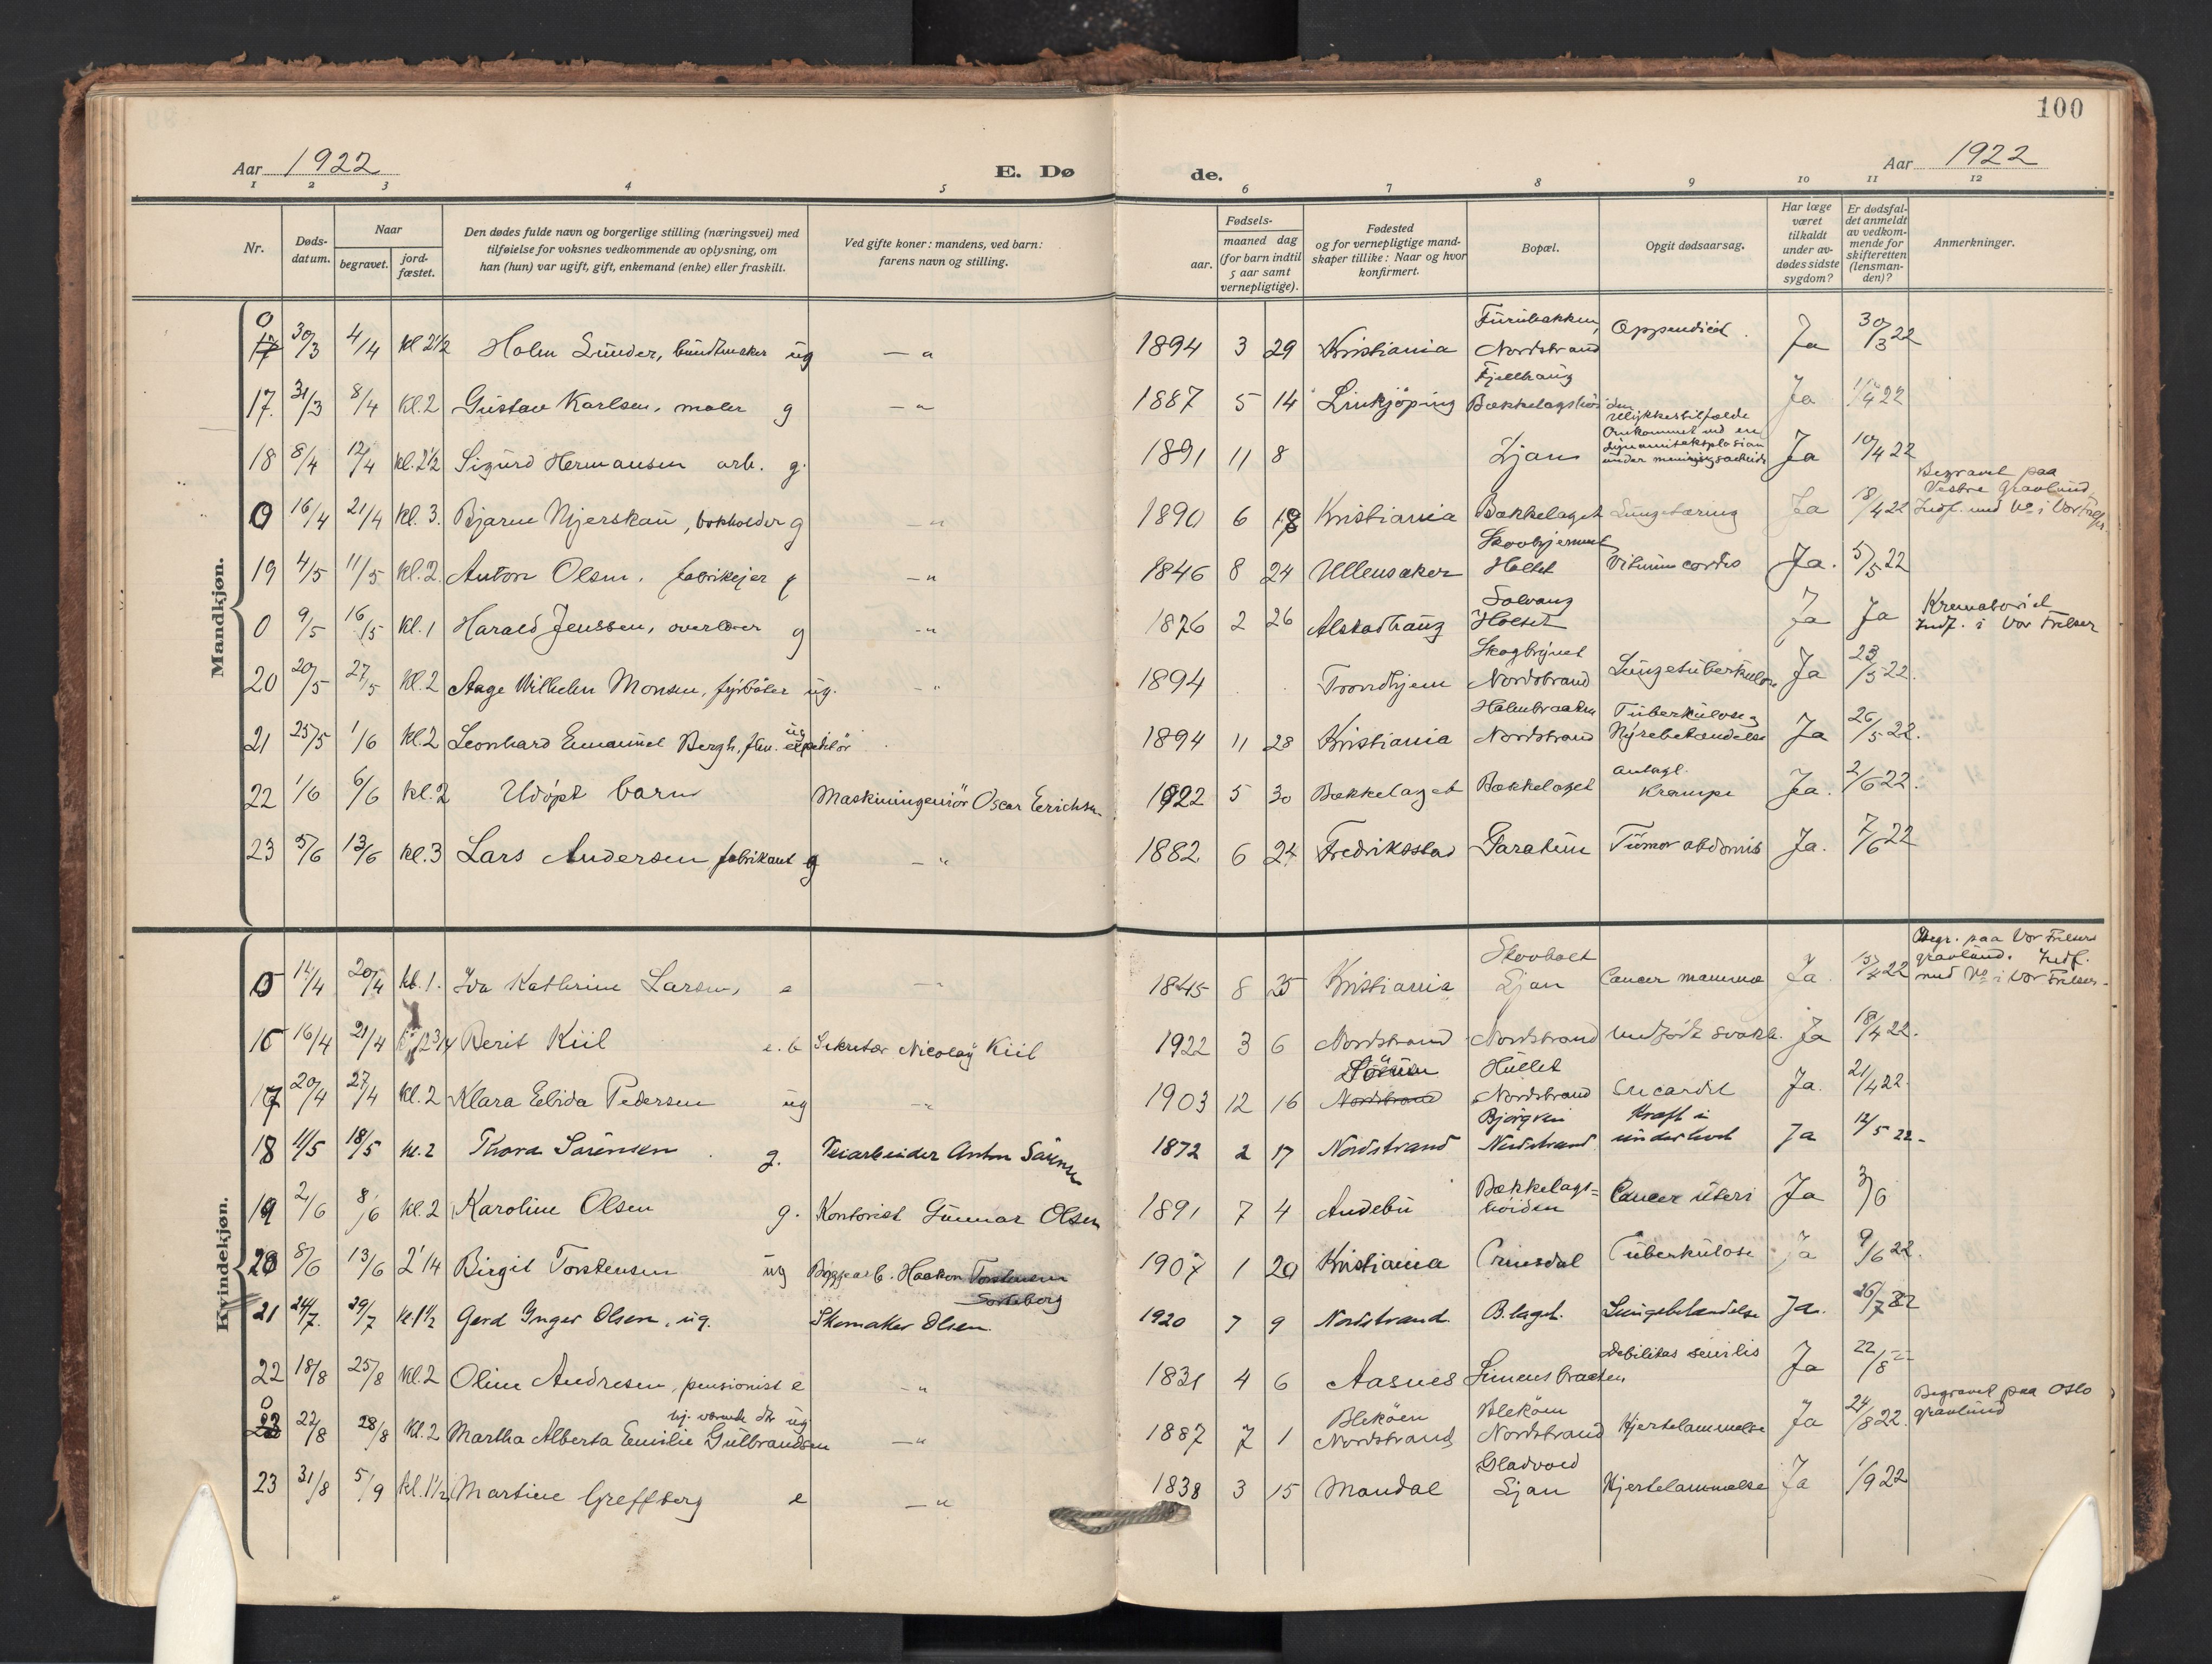 100
Aar 1922
E. Døde.
Aar 1922
1 2 3 4 5 6 7 8 9 10 11 12
Nr.
Døds-datum.
Naar
begravet.
jord-fæstet.
Den dødes fulde navn og borgerlige stilling (næringsvei) med
tilføielse for voksnes vedkommende av oplysning, om
han (hun) var ugift, gift, enkemand (enke) eller fraskilt.
Ved gifte koner: mandens, ved barn:
farens navn og stilling.
Fødsels-
aar.
maaned dag
(for barn indtil
5 aar samt
vernepligtige).
Fødested
og for vernepligtige mand-
skaper tillike: Naar og hvor
konfirmert.
Bopæl.
Opgit dødsaarsag.
Har læge
været
tilkaldt
under av-
dødes sidste
sygdom?
Er dødsfal-
det anmeldt
av vedkom-
mende for
skifteretten
(lensman-
den)?
Anmerkninger.
Mandkjøn.
0 17 30/3 4/4 kl 2 1/2 Holm Sunder, bundtmaker ug — " 1894 3 29 Kristiania Furubakken, Nordstrand Appendicit. Ja 30/3 22
17. 31/3 8/4 kl. 2 Gustav Karlsen, maler g — " 1887 5 14 Linkjöping Fjellhaug Bækkelagshøiden Ja 1/4 22
18 8/4 12/4 kl. 2 1/2 Sigurd Hermansen arb. g. 1891 11 8 Ljan Ulykkestilfælde Omkommet ved en dynamiteksplosion under mineringsarbeide Ja 10/4 22
0 16/4 21/4 kl. 3. Bjarne Mjerskau, bokholder g — " 1890 6 18 Kristiania Bækkelaget Lungetæring Ja 18/4 22 Begravet paa Vestre gravlund. Indf. med No i Vor Frelser.
19 4/5 11/5 kl. 2. Anton Olsen. fabrikejer g — " 1846 8 24 Ullensaker Skovhjemmet Holtet Vitium cordis Ja. 5/5 22
0 9/5 16/5 kl. 1 Harald Jenssen, overlærer g — " 1876 2 26 Alstadhaug Solvang Holtet Ja Ja Krematoriet Indf. i Vor Frelser
20 20/5 27/5 kl. 2 Aage Wilhelm Monsen, fyrbøter ug. — " 1894 Trondhjem Skogbrynet Nordstrand Lungetuberkulose Ja 23/5 22.
21 25/5 1/6 kl. 2 Leonhard Emanuel Bergh, fhv. ekspeditör ug 1894 11 28 Kristiania Holmbraaten Nordstrand Tuberkulose og Nyrebetændelse Ja 26/5 22.
22 1/6 6/6 kl. 2 Udöpt barn Maskiningeniör Oscar Erichsen 1922 5 30 Bækkelaget Bækkelaget antagl. Krampe Ja. 2/6 22.
23 5/6 13/6 kl. 3 Lars Andersen fabrikant g — " 1882 6 24 Fredriksstad Tumor abdomis Ja. 7/6 22
Kvindekjøn.
0 14/4 20/4 kl. 1. Iva Kathrine Larsen, e — " 1845 8 25 Kristiania Skovholt Ljan Cancer mammæ Ja 15/4 22 Begr. paa Vor Frelsers gravlund. Indf. med No i Vor Frelser.
16 16/4 21/4 Berit Kiil e. b Sekretær Nicolay Kiil 1922 3 6 Nordstrand Nordstrand medfødt svakh. Ja 18/4 22.
17 20/4 27/4 kl. 2 Klara Elvida Pedersen ug — " 1903 12 16 Sörum Nordstrand Hullet Nordstrand Ja. 21/4 22.
18 11/5 18/5 kl. 2 Thora Sörensen g. Veiarbeider Anton Sörensen 1872 2 17 Nordstrand Björgvin Nordstrand Kræft i underlivet Ja 12/5 22.
19 2/6 8/6 kl. 2 Karoline Olsen g. Kontorist Gunnar Olsen 1891 7 4 Andebu Bækkelags-høiden Cancer uteri Ja 3/6
20 8/6 13/6 2 1/4 Birgit Torstensen ug Haakon Torstensen Sorteberg 1907 1 20 Kristiania Tuberkulose Ja 9/6 22.
21 24/7. 29/7 kl 1 1/2 Gerd Inger Olsen, ug. Skomaker Olsen. 1920 7 9 Nordstrand. B.laget. Lungebetændelse Ja. 26/7 22
22 18/8 25/8 kl. 2 Oline Andresen, pensionist e — " 1831 4 6 Aasnes Simensbraaten Debilitas senilis Ja 22/8
0 23 22/8 28/8 kl. 2 Martha Alberta Emilie Gulbrandsen hj. værende dtr ug — " 1887 7 1 Blekøen Nordstrand Blekøen Nordstrand Hjertelammelse Ja 24/8 22. Begravet paa Oslo gravlund
23 31/8 5/9 kl. 1 1/2 Martine Greffberg e — " 1838 3 15 Mandal Gladvold Ljan Hjertelammelse Ja 1/9 22